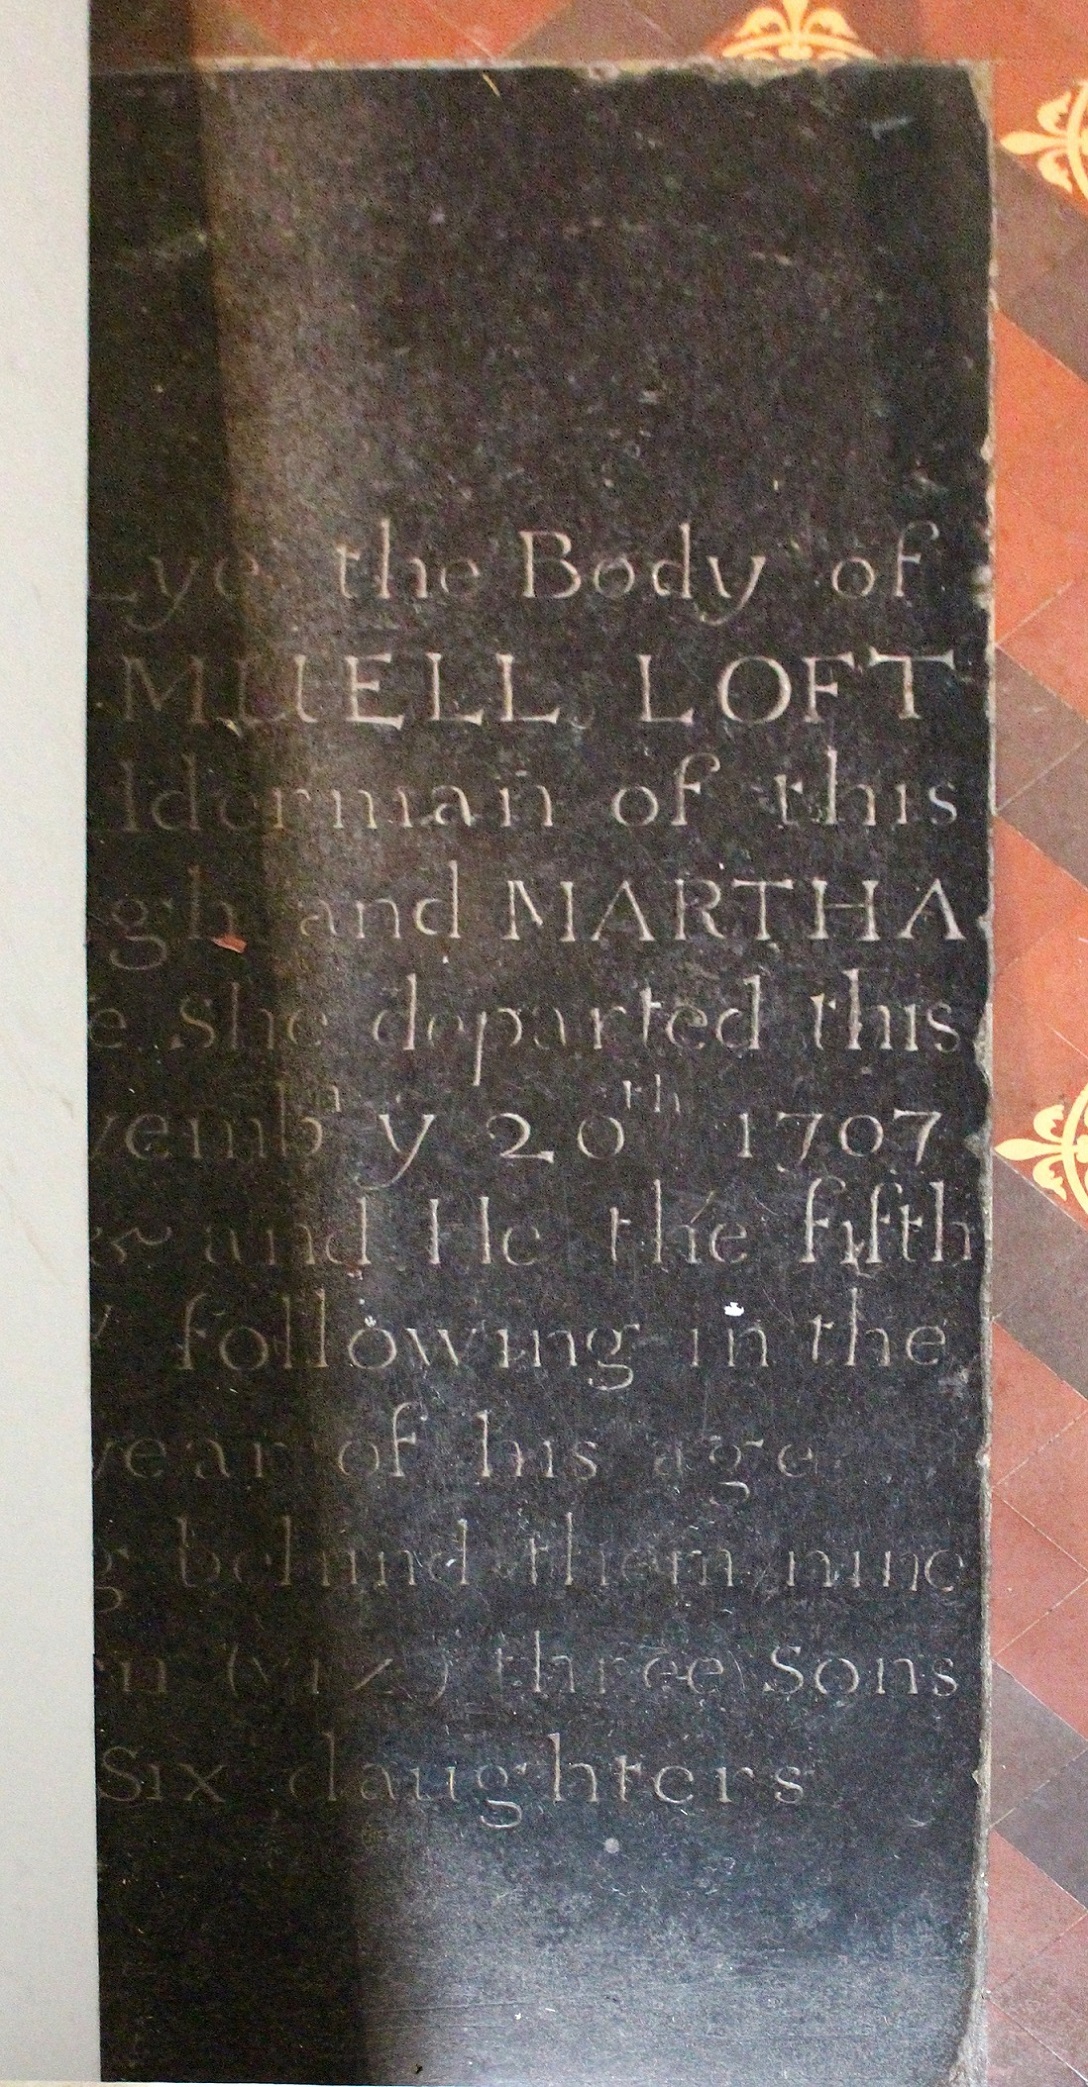 Lye the Body of
MUELL LOFT
lderman of this
gh and MARTHA
e She departed this
vemb y 20th 1707
and He the fifth
following in the
year of his age
g behind them nine
n (viz) three Sons
Six daughters